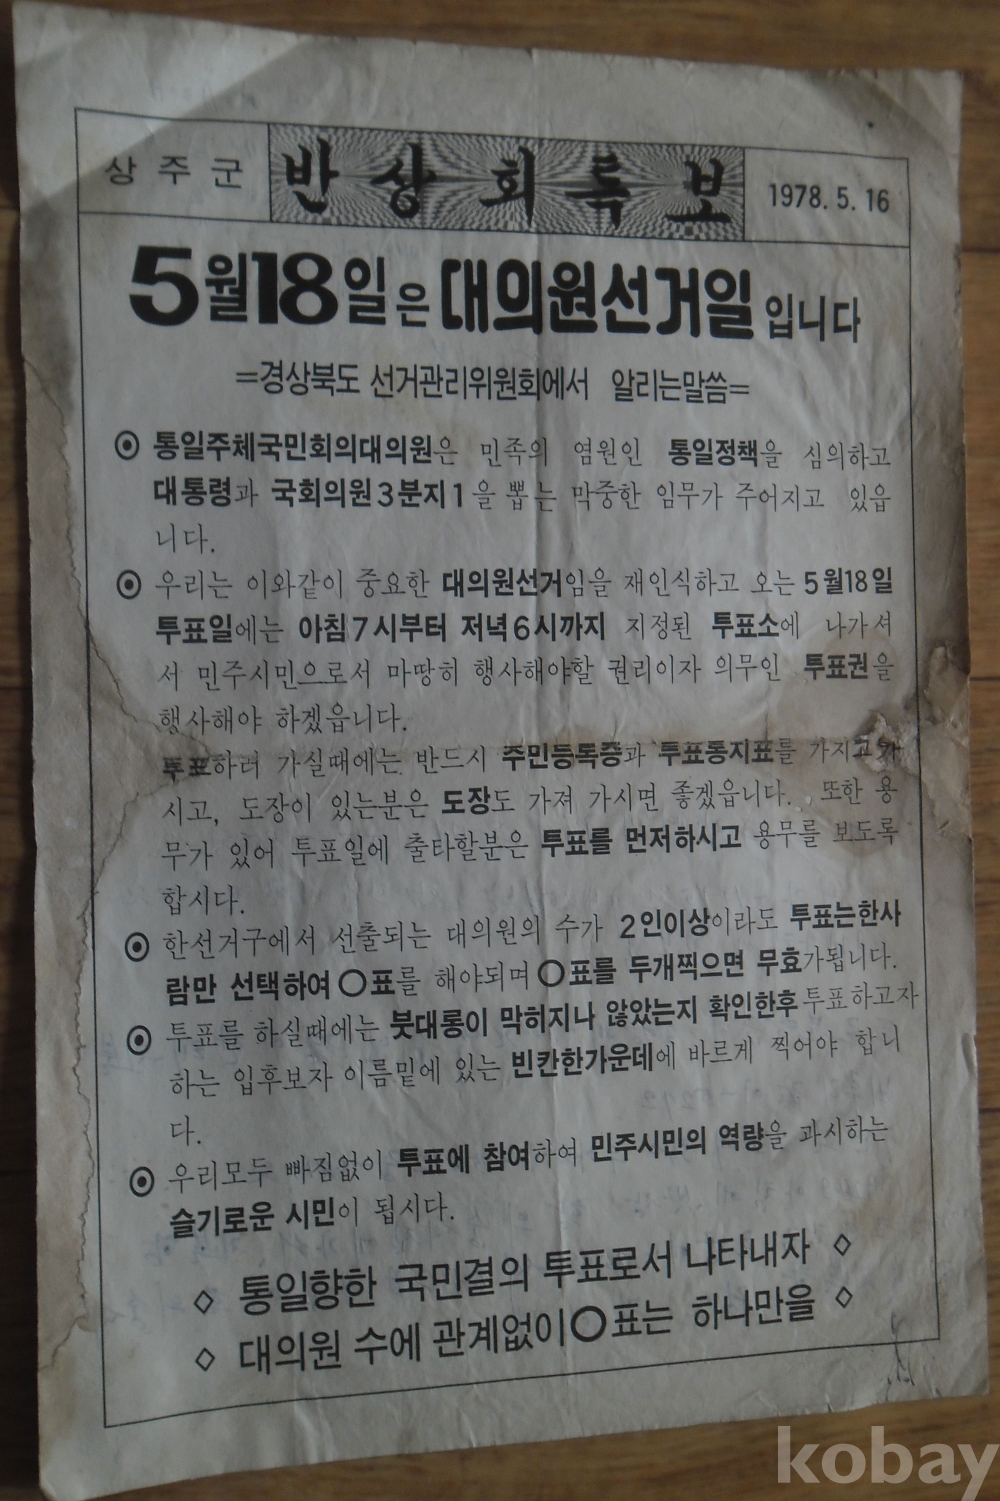 상주군 반상회특보 1978. 5. 16
5월18일은 대의원선거일입니다
=경상북도 선거관리위원회에서 알리는말씀=
⦿ 통일주체국민회의대의원은 민족의 염원인 통일정책을 심의하고
대통령과 국회의원3분지1을 뽑는 막중한 임무가 주어지고 있읍
니다.
⦿ 우리는 이와같이 중요한 대의원선거임을 재인식하고 오는 5월18일
투표일에는 아침7시부터 저녁6시까지 지정된 투표소에 나가셔
서 민주시민으로서 마땅히 행사해야할 권리이자 의무인 투표권을
행사해야 하겠읍니다.
투표하러 가실때에는 반드시 주민등록증과 투표통지표를 가지고 가
시고, 도장이 있는분은 도장도 가져 가시면 좋겠읍니다. 또한 용
무가 있어 투표일에 출타할분은 투표를 먼저하시고 용무를 보도록
합시다.
⦿ 한선거구에서 선출되는 대의원의 수가 2인이상이라도 투표는한사
람만 선택하여 ○표를 해야되며 ○표를 두개찍으면 무효가됩니다.
⦿ 투표를 하실때에는 붓대롱이 막히지나 않았는지 확인한후 투표하고자
하는 입후보자 이름밑에 있는 빈칸한가운데에 바르게 찍어야 합니
다.
⦿ 우리모두 빠짐없이 투표에 참여하여 민주시민의 역량을 과시하는
슬기로운 시민이 됩시다.
◇ 통일향한 국민결의 투표로서 나타내자 ◇
◇ 대의원 수에 관계없이 ○표는 하나만을 ◇
kobay